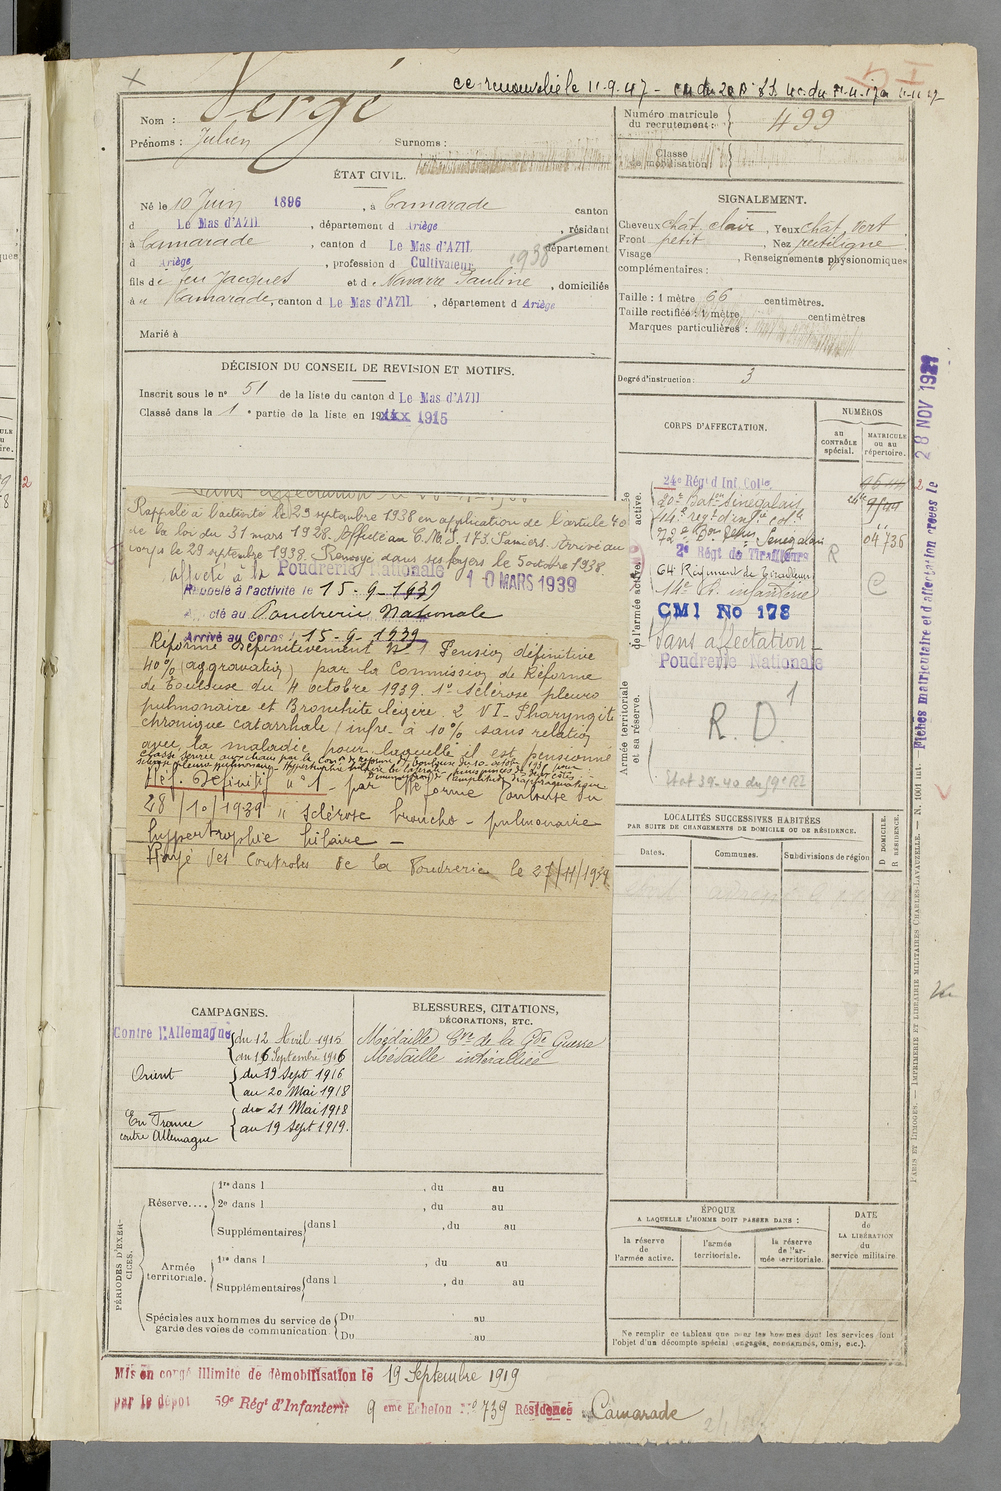 ce renouvelé le 11.9.47 -
Nom : Vergé
Prénoms : Julien Surnoms :
Numéro matricule du recrutement : 499
Classe de mobilisation
ÉTAT CIVIL.
Né le 10 Juin 1896, à Camarade canton
d Le Mas d'AZIL, département d Ariège, résidant
à Camarade, canton d Le Mas d'AZIL département
d Ariège, profession d Cultivateur 1938
fils de feu Jacques et de Navarre Pauline, domiciliés
à Camarade, canton d Le Mas d'AZIL, département d Ariège
Marié à
SIGNALEMENT.
Cheveux chât clair, Yeux chât vert
Front petit, Nez rectiligne
Visage, Renseignements physionomiques
complémentaires :
Taille : 1 mètre 66 centimètres.
Taille rectifiée : 1 mètre centimètres
Marques particulières :
Degré d'instruction : 3
DÉCISION DU CONSEIL DE REVISION ET MOTIFS.
Inscrit sous le n° 51 de la liste du canton d Le Mas d'AZIL
Classé dans la 1e partie de la liste en 19xxx 1915
Rappelé à l'activité le 29 septembre 1938 en application de l'article 40
de la loi du 31 mars 1928. Affecté au C.M.I. 173. Pamiers. Arrivé au
corps le 29 septembre 1938. Renvoyé dans ses foyers le 5 octobre 1938.
affecté à la Poudrerie Nationale 10 MARS 1939
Rappelé à l'activité le 15-9-1939
cté au Poudrerie Nationale
Arrivé au Corps 15-9-1939
Réformé définitivement N° 1 Pension définitive
40% (aggravation) par la Commission de Réforme
de Toulouse du 4 octobre 1939. 1° Sclérose pleuro
pulmonaire et Bronchite légère. 2 VI-Pharyngite
chronique catarrhale infre à 10% sans relation
avec la maladie pour laquelle il est pensionné
Réf. Définitif n° 1 par Réforme Toulouse du
28/10/1939 " sclérose broncho-pulmonaire
hypertrophie hilaire -
Rayé des Controles de la Poudrerie le 27/11/1939
CORPS D'AFFECTATION.
NUMÉROS
au CONTRÔLE spécial.
MATRICULE ou au répertoire.
de l'armée active.
Armée territoriale et sa réserve.
24e Régt d'Inf. Colle
20e Baton Sénégalais
72e Bon Sénégalais 04736
2e Régt de Tirailleurs R
64 Régiment de Tirailleurs C
14e R. infanterie
CMI No 173
Sans affectation -
Poudrerie Nationale
R.D. 1
Fiches matriculaire et d'affectation créées le 28 NOV 1921
LOCALITÉS SUCCESSIVES HABITÉES
PAR SUITE DE CHANGEMENTS DE DOMICILE OU DE RÉSIDENCE.
Dates. Communes. Subdivisions de région
D DOMICILE.
R RÉSIDENCE.
CAMPAGNES.
Contre l'Allemagne du 12 Avril 1915
au 16 Septembre 1916
Orient du 19 Sept 1916
au 20 Mai 1918
En France contre Allemagne du 21 Mai 1918
au 19 Sept 1919.
BLESSURES, CITATIONS,
DÉCORATIONS, ETC.
Médaille Cve de la Gde Guerre
Médaille interalliée
PÉRIODES D'EXERCICES.
Réserve.... 1re dans l , du au
2e dans l , du au
Supplémentaires dans l , du au
Armée territoriale. 1re dans l , du au
Supplémentaires dans l , du au
Spéciales aux hommes du service de garde des voies de communication. Du au
Du au
ÉPOQUE
A LAQUELLE L'HOMME DOIT PASSER DANS :
la réserve de l'armée active.
l'armée territoriale.
la réserve de l'armée territoriale.
DATE de LA LIBÉRATION du service militaire.
Ne remplir ce tableau que pour les hommes dont les services font
l'objet d'un décompte spécial (engagés, condamnés, omis, etc.).
PARIS ET LIMOGES. — IMPRIMERIE ET LIBRAIRIE MILITAIRES CHARLES-LAVAUZELLE. — N. 1001 int.
Mis en congé illimité de démobilisation le 19 Septembre 1919
par le dépôt 59e Régt d'Infanterie 9 eme Echelon N° 739 Résidence Camarade